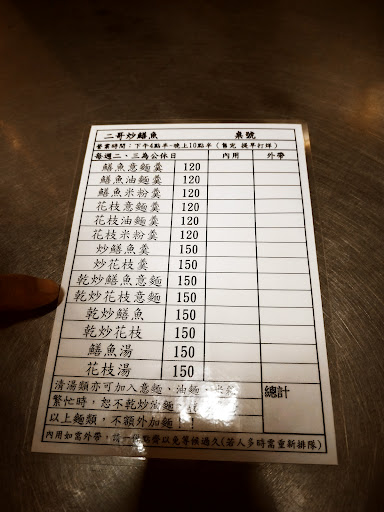 二哥炒鱔魚 桌號
營業時間：下午4點半-晚上10點半（售完 提早打烊）
每週二、三為公休日 內用 外帶
鱔魚意麵羹 120
鱔魚油麵羹 120
鱔魚米粉羹 120
花枝意麵羹 120
花枝油麵羹 120
花枝米粉羹 120
炒鱔魚羹 150
炒花枝羹 150
乾炒鱔魚意麵 150
乾炒花枝意麵 150
乾炒鱔魚 150
乾炒花枝 150
鱔魚湯 150
花枝湯 150
清湯類亦可加入意麵、油麵、米粉 總計
繁忙時，恕不乾炒油麵
以上麵類，不額外加麵
內用如需外帶，請一併點齊以免等候過久(若人多時需重新排隊)